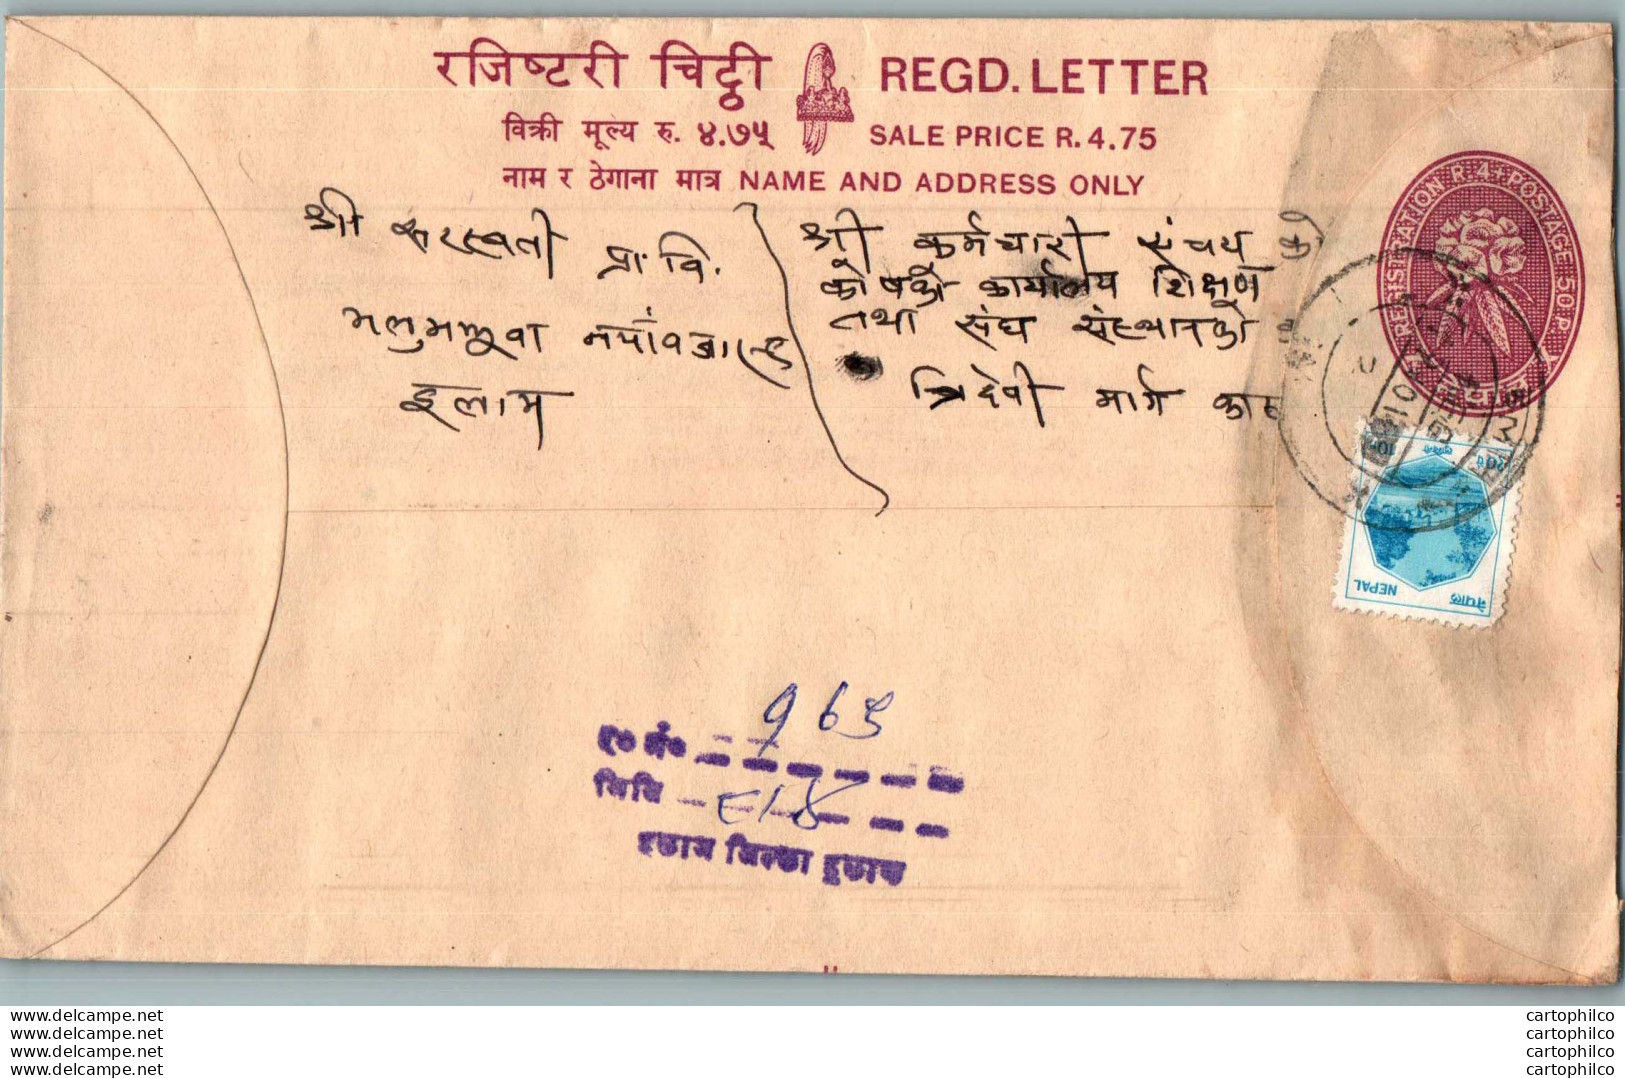 रजिष्टरी चिट्ठी REGD. LETTER
विक्री मूल्य रु. ४.७५ SALE PRICE R. 4.75
नाम र ठेगाना मात्र NAME AND ADDRESS ONLY
REGISTRATION R. 4+POSTAGE 50 P.
NEPAL
श्री सरस्वती प्रा. वि.
इलाम
श्री कर्मचारी संचय
कोषको कार्यालय शिक्षण
तथा संघ संस्थानको
त्रिदेवी मार्ग
नेपाल NEPAL
१९६५
र० नं०
मिति
इलाम जिल्ला हुलाक
www.delcampe.net
www.delcampe.net
www.delcampe.net
www.delcampe.net
cartophilco
cartophilco
cartophilco
cartophilco